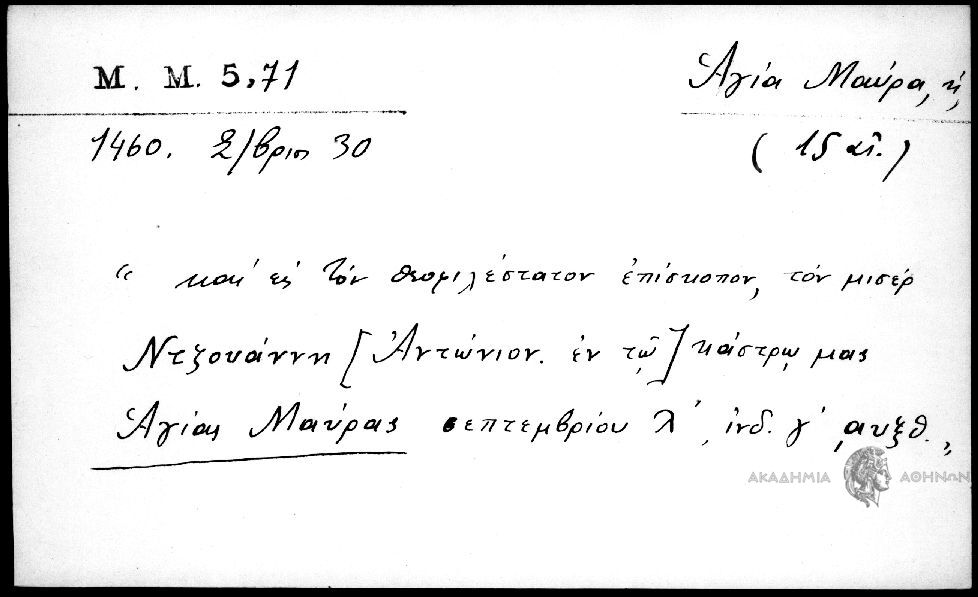 Μ. Μ. 5,71
Ἁγία Μαύρα, ἡ,
1460. Σ/βριου 30
(15 αἰ.)
“ καὶ εἰς τὸν θεοφιλέστατον ἐπίσκοπον, τὸν μισέρ
Ντζουάννη [Ἀντώνιον. ἐν τῷ] κάστρῳ μας
Ἁγίας Μαύρας σεπτεμβρίου λ΄, ἰνδ. γ΄ ͵αυξθ. „
ΑΚΑΔΗΜΙΑ ΑΘΗΝΩΝ